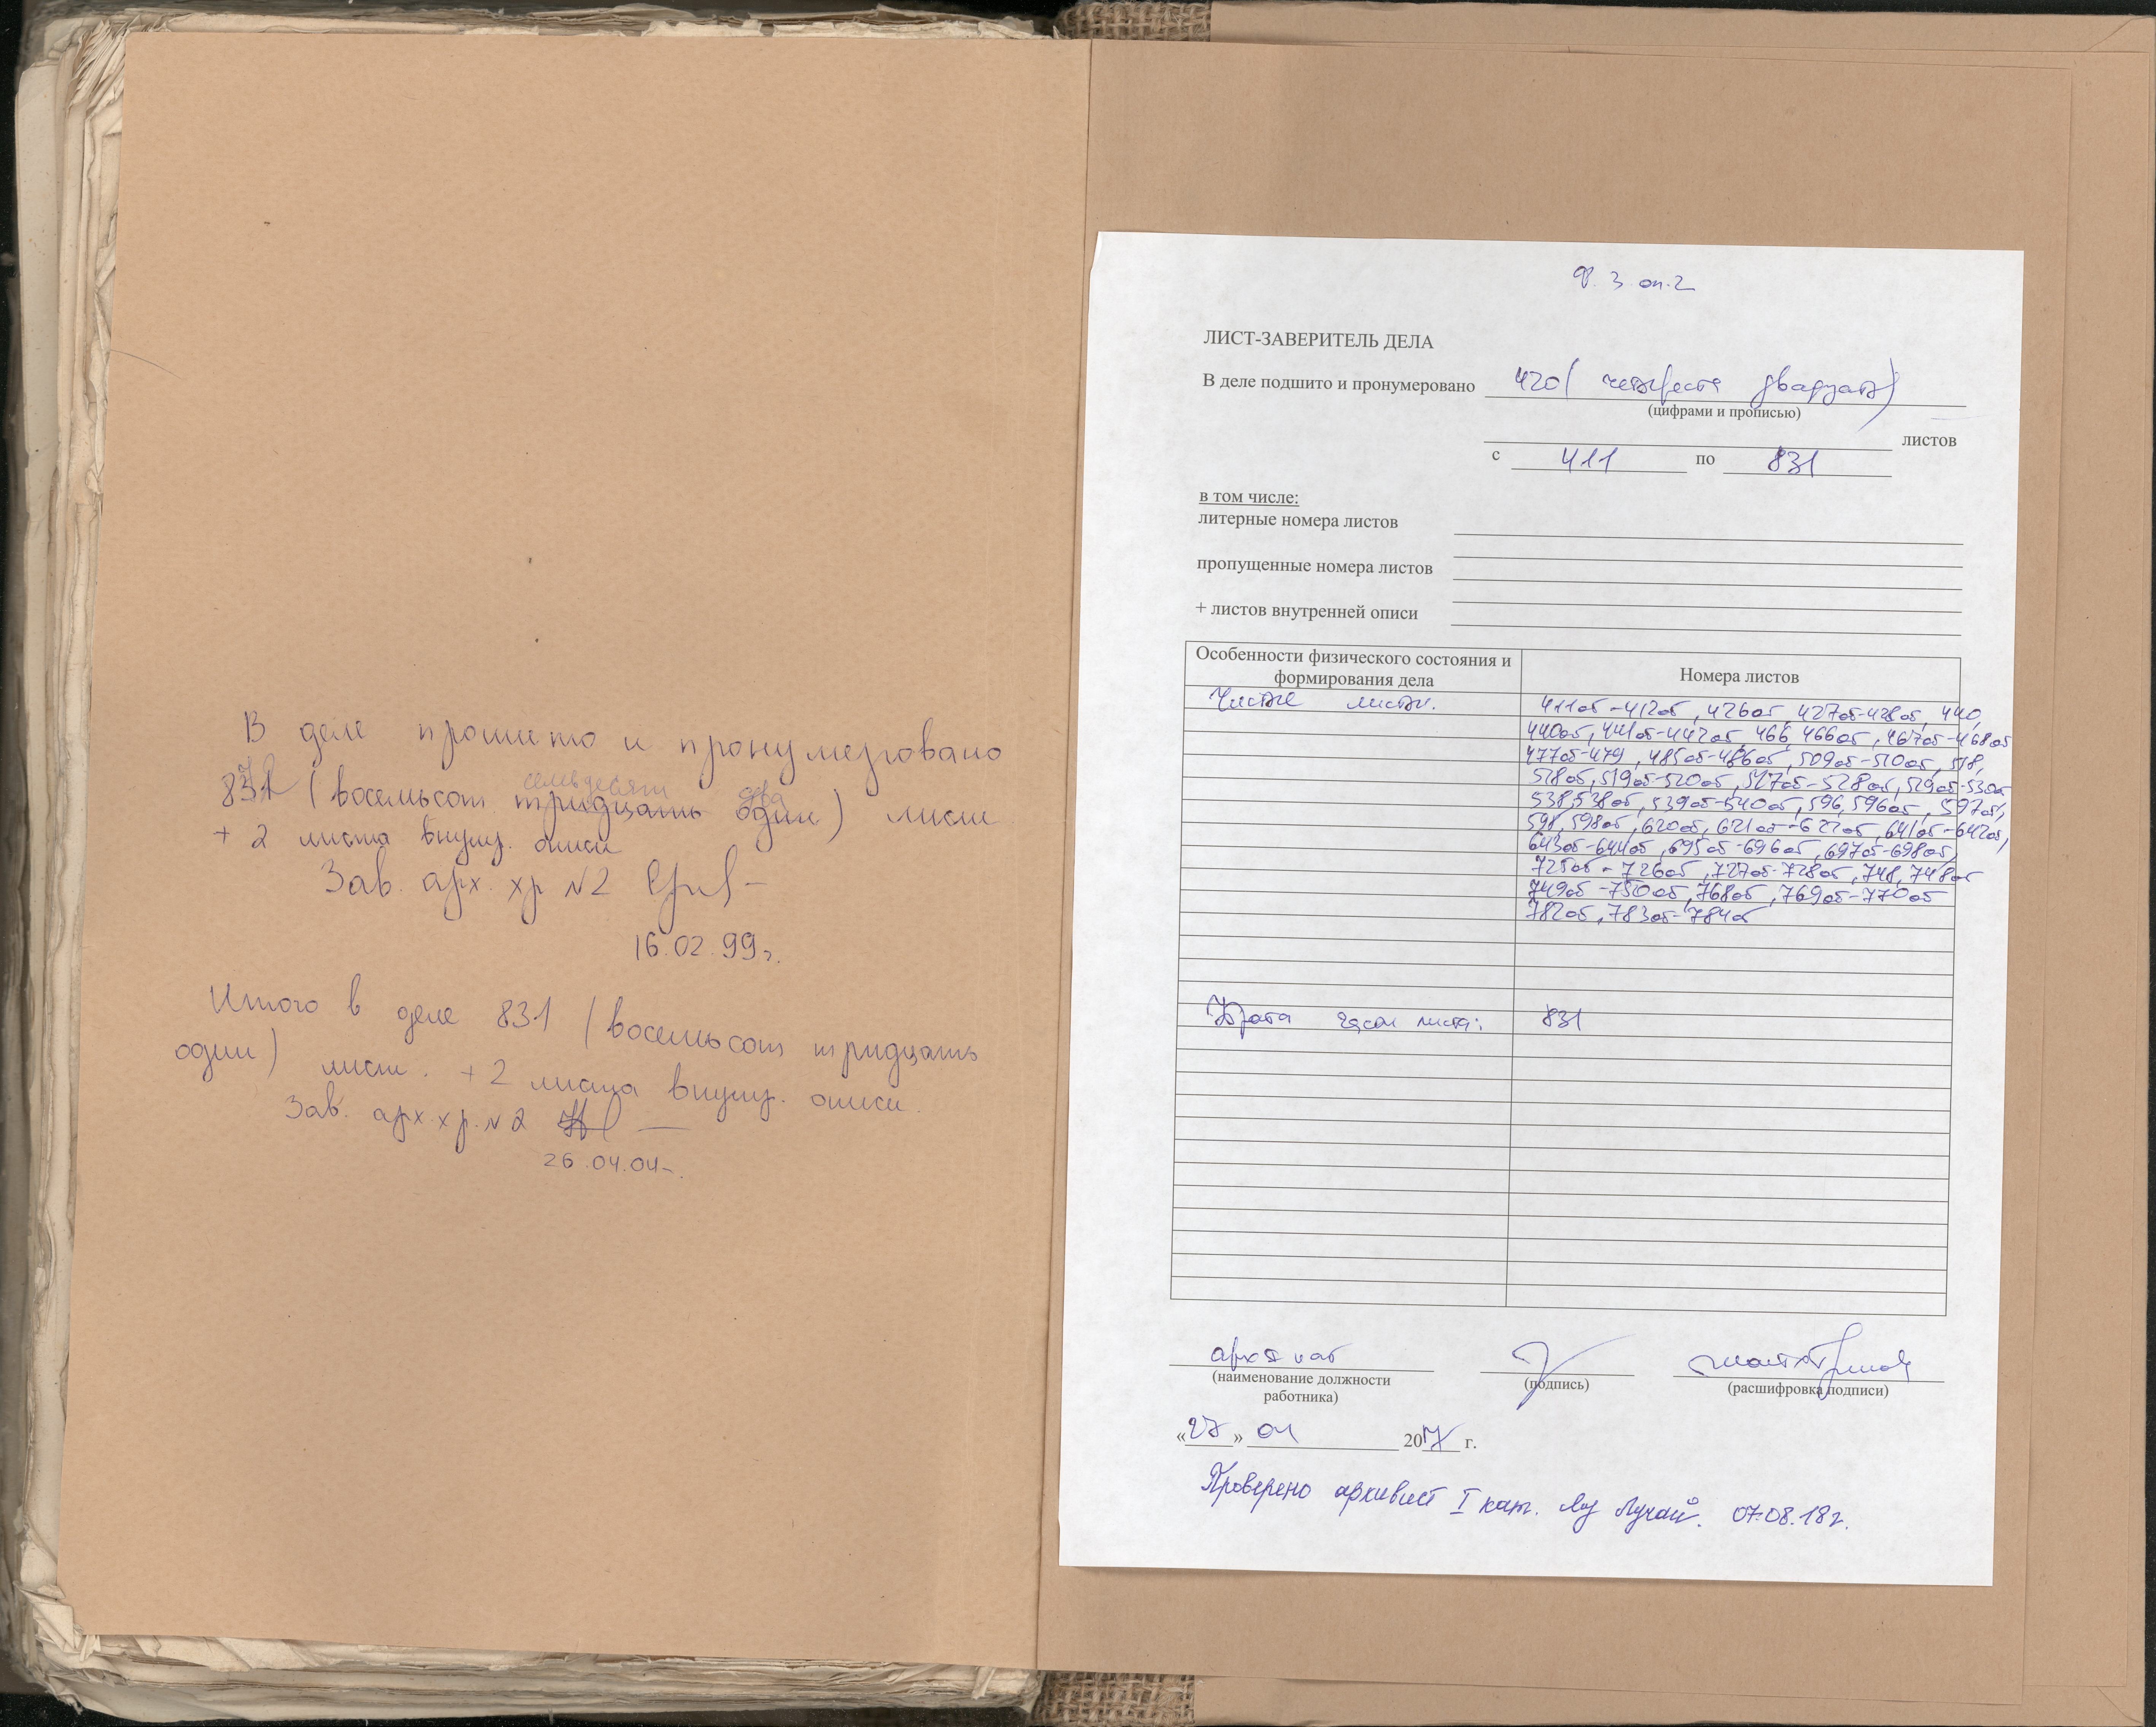 В деле прошито и пронумеровано
семьдесят два
831 (восемьсот тридцать один) лист
+ 2 листа внутр. описи
Зав. арх. хр №2
16.02.99г.
Итого в деле 831 (восемьсот тридцать
один) лист. + 2 листа внутр. описи.
Зав. арх. хр. №2
26.04.04
ф. 3 оп. 2
ЛИСТ-ЗАВЕРИТЕЛЬ ДЕЛА
В деле подшито и пронумеровано 420 (четыреста двадцать)
(цифрами и прописью)
листов
с 411 по 831
в том числе:
литерные номера листов
пропущенные номера листов
+ листов внутренней описи
Особенности физического состояния и формирования дела
Номера листов
Чистые листы. 411об-412об, 426об, 427об-428об, 440,
440об, 441об-442об, 466, 466об, 467об-468об
477об-479, 485об-486об, 509об-510об, 518,
518об, 519об-520об, 527об-528об, 529об-530об
538, 538об, 539об-540об, 596, 596об, 597об,
598, 598об, 620об, 621об-622об, 641об-642об,
643об-644об, 695об-696об, 697об-698об,
725об-726об, 727об-728об, 748, 748об
749об-750об, 768об, 769об-770об
782об, 783об-784об
Утрата части листа: 831
архивист
(наименование должности работника)
(подпись)
(расшифровка подписи)
«27» 04 2017 г.
Проверено архивист I кат. Лучай. 07.08.18г.